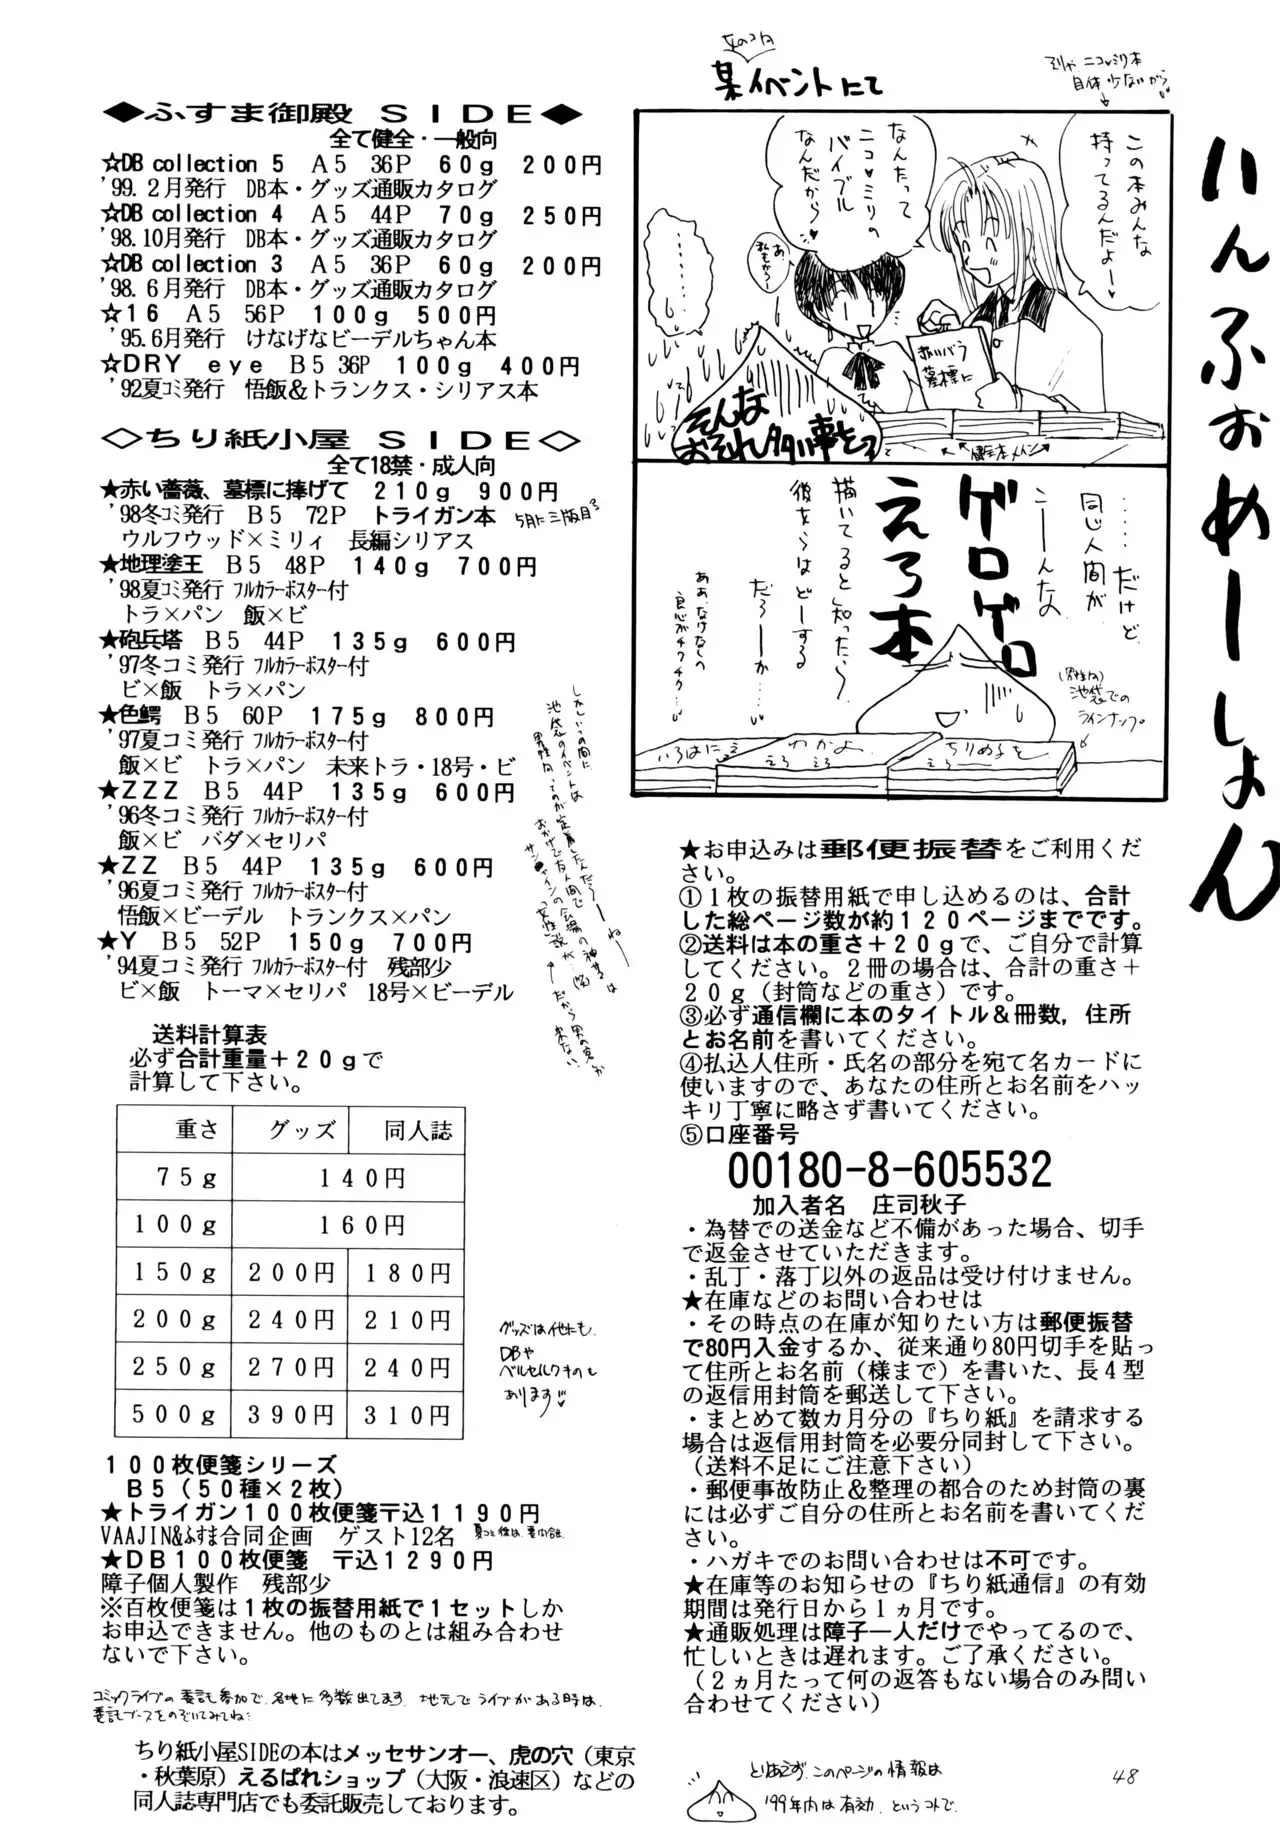 いんふぉめーしょん
某イベントにて
自体少ないがら
この本みんな
持ってるんだよー
なんたって
ニコ・ミリの
バイブル
なんだから
あ、
私もかうー
‥‥‥‥
赤いバラ
墓標に
そんな
おそれ多い事を
‥‥‥だけど
同じ人間が
こーーんな
ゲロゲロ
えろ本
描いてると知ったら
彼女らはどーする
だろーーか‥‥
ああ、なけなしの
良心がチクチク‥
池袋での
ラインナップ。
いろはにえ
わかよ
えろえろ
ちりめろを
◆ふすま御殿 SIDE◆
全て健全・一般向
☆DB collection 5 A5 36P 60g 200円
'99.2月発行 DB本・グッズ通販カタログ
☆DB collection 4 A5 44P 70g 250円
'98.10月発行 DB本・グッズ通販カタログ
☆DB collection 3 A5 36P 60g 200円
'98.6月発行 DB本・グッズ通販カタログ
☆16 A5 56P 100g 500円
'95.6月発行 けなげなビーデルちゃん本
☆DRY eye B5 36P 100g 400円
'92夏コミ発行 悟飯&トランクス・シリアス本
◇ちり紙小屋 SIDE◇
全て18禁・成人向
★赤い薔薇、墓標に捧げて 210g 900円
'98冬コミ発行 B5 72P トライガン本 5月に三版目
ウルフウッド×ミリィ 長編シリアス
★地理塗王 B5 48P 140g 700円
'98夏コミ発行 フルカラーポスター付
トラ×パン 飯×ビ
★砲兵塔 B5 44P 135g 600円
'97冬コミ発行 フルカラーポスター付
ビ×飯 トラ×パン
★色鰐 B5 60P 175g 800円
'97夏コミ発行 フルカラーポスター付
飯×ビ トラ×パン 未来トラ・18号・ビ
★ZZZ B5 44P 135g 600円
'96冬コミ発行 フルカラーポスター付
飯×ビ バダ×セリパ
★ZZ B5 44P 135g 600円
'96夏コミ発行 フルカラーポスター付
悟飯×ビーデル トランクス×パン
★Y B5 52P 150g 700円
'94夏コミ発行 フルカラーポスター付 残部少
ビ×飯 トーマ×セリパ 18号×ビーデル
送料計算表
必ず合計重量+20gで
計算して下さい。
重さ グッズ 同人誌
75g 140円
100g 160円
150g 200円 180円
200g 240円 210円
250g 270円 240円
500g 390円 310円
グッズは他にも
DBや
ベルセルクキのも
あります
100枚便箋シリーズ
B5(50種×2枚)
★トライガン100枚便箋〒込1190円
VAAJIN&ふすま合同企画 ゲスト12名
★DB100枚便箋 〒込1290円
障子個人製作 残部少
※百枚便箋は1枚の振替用紙で1セットしか
お申込できません。他のものとは組み合わせ
ないで下さい。
コミックライブの委託参加で、各地に多数出てます。地元でライブがある時は、
委託ブースをのぞいてみてね
ちり紙小屋SIDEの本はメッセサンオー、虎の穴(東京
・秋葉原)えるぱれショップ(大阪・浪速区)などの
同人誌専門店でも委託販売しております。
★お申込みは郵便振替をご利用くだ
さい。
①1枚の振替用紙で申し込めるのは、合計
した総ページ数が約120ページまでです。
②送料は本の重さ+20gで、ご自分で計算
してください。2冊の場合は、合計の重さ+
20g(封筒などの重さ)です。
③必ず通信欄に本のタイトル&冊数,住所
とお名前を書いてください。
④払込人住所・氏名の部分を宛て名カードに
使いますので、あなたの住所とお名前をハッ
キリ丁寧に略さず書いてください。
⑤口座番号
00180-8-605532
加入者名 庄司秋子
・為替での送金など不備があった場合、切手
で返金させていただきます。
・乱丁・落丁以外の返品は受け付けません。
★在庫などのお問い合わせは
・その時点の在庫が知りたい方は郵便振替
で80円入金するか、従来通り80円切手を貼っ
て住所とお名前(様まで)を書いた、長4型
の返信用封筒を郵送して下さい。
・まとめて数カ月分の『ちり紙』を請求する
場合は返信用封筒を必要分同封して下さい。
(送料不足にご注意下さい)
・郵便事故防止&整理の都合のため封筒の裏
には必ずご自分の住所とお名前を書いてくだ
さい。
・ハガキでのお問い合わせは不可です。
★在庫等のお知らせの『ちり紙通信』の有効
期間は発行日から1ヵ月です。
★通販処理は障子一人だけでやってるので、
忙しいときは遅れます。ご了承ください。
(2ヵ月たって何の返答もない場合のみ問い
合わせてください)
とりあえず、このページの情報は
'99年内は有効、というコトで。
48